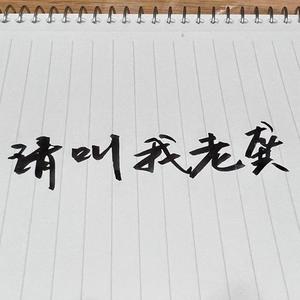 请叫我老龚